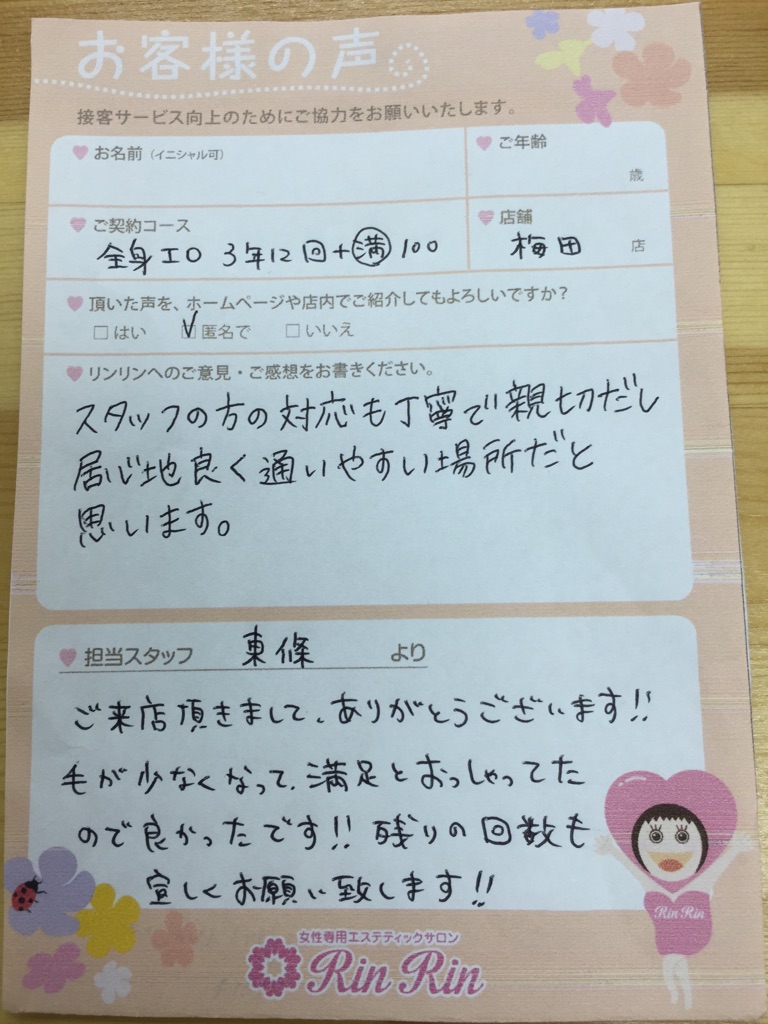 お客様の声
接客サービス向上のためにご協力をお願いいたします。
お名前（イニシャル可）
ご年齢
歳
ご契約コース
全身エロ 3年12回+満100
店舗
梅田 店
頂いた声を、ホームページや店内でご紹介してもよろしいですか？
はい 匿名で いいえ
リンリンへのご意見・ご感想をお書きください。
スタッフの方の対応も丁寧で親切だし
居心地良く通いやすい場所だと
思います。
担当スタッフ 東條 より
ご来店頂きまして、ありがとうございます!!
毛が少なくなって、満足とおっしゃってた
ので良かったです!! 残りの回数も
宜しくお願い致します!!
Rin Rin
女性専用エステティックサロン
Rin Rin